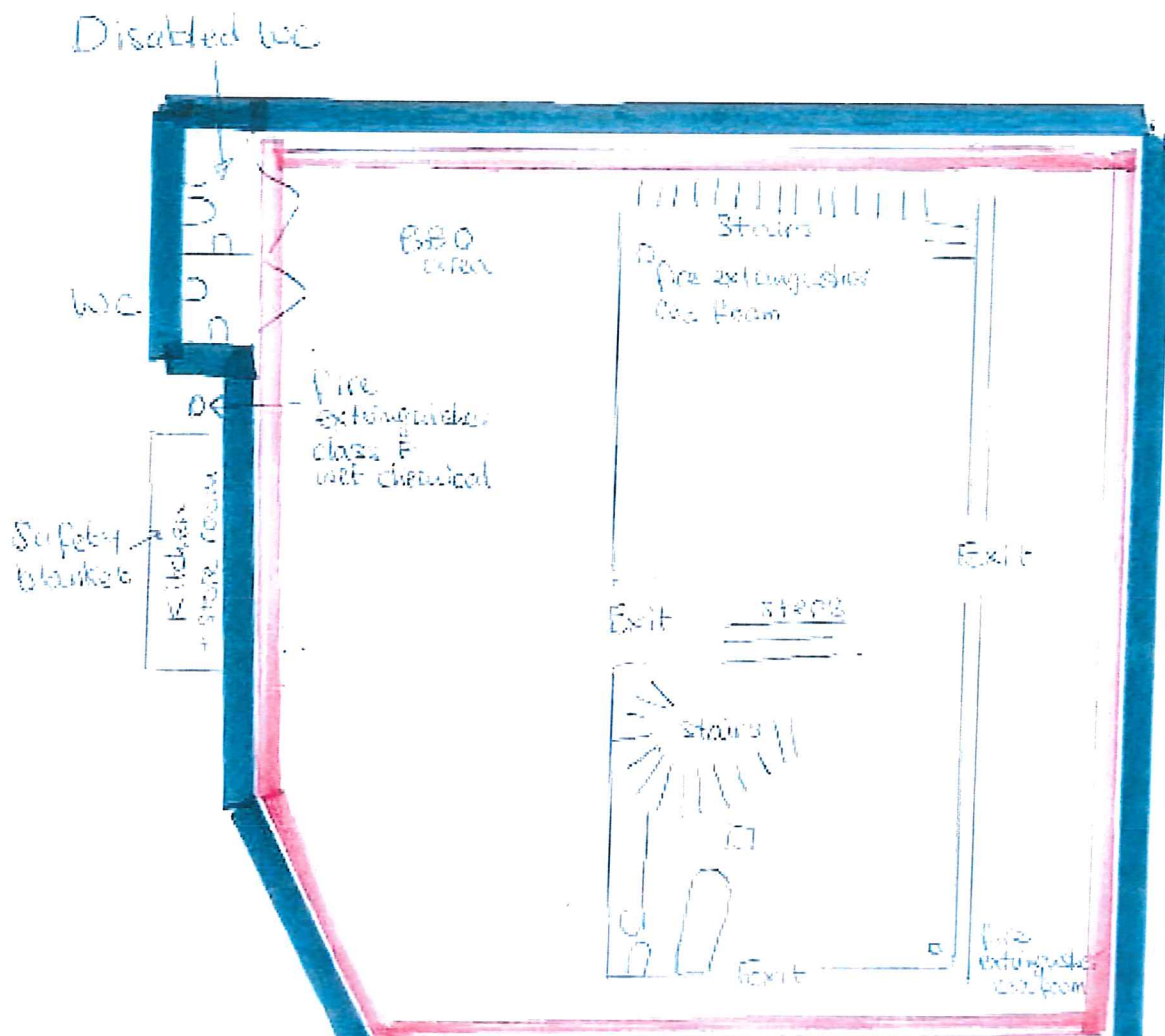 Disabled WC
BBQ
area
Stairs
fire extinguisher
foam
WC
fire
extinguisher
class F
wet chemical
Safety
blanket
Kitchen
+ store room
Exit
Exit
steps
stairs
Exit
fire
extinguisher
foam